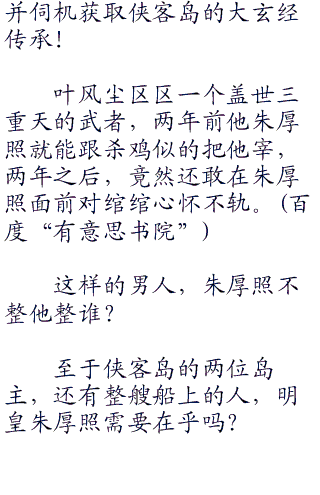 并伺机获取侠客岛的大玄经
传承！
叶风尘区区一个盖世三
重天的武者，两年前他朱厚
照就能跟杀鸡似的把他宰，
两年之后，竟然还敢在朱厚
照面前对绾绾心怀不轨。（百
度“有意思书院”）
这样的男人，朱厚照不
整他整谁？
至于侠客岛的两位岛
主，还有整艘船上的人，明
皇朱厚照需要在乎吗？